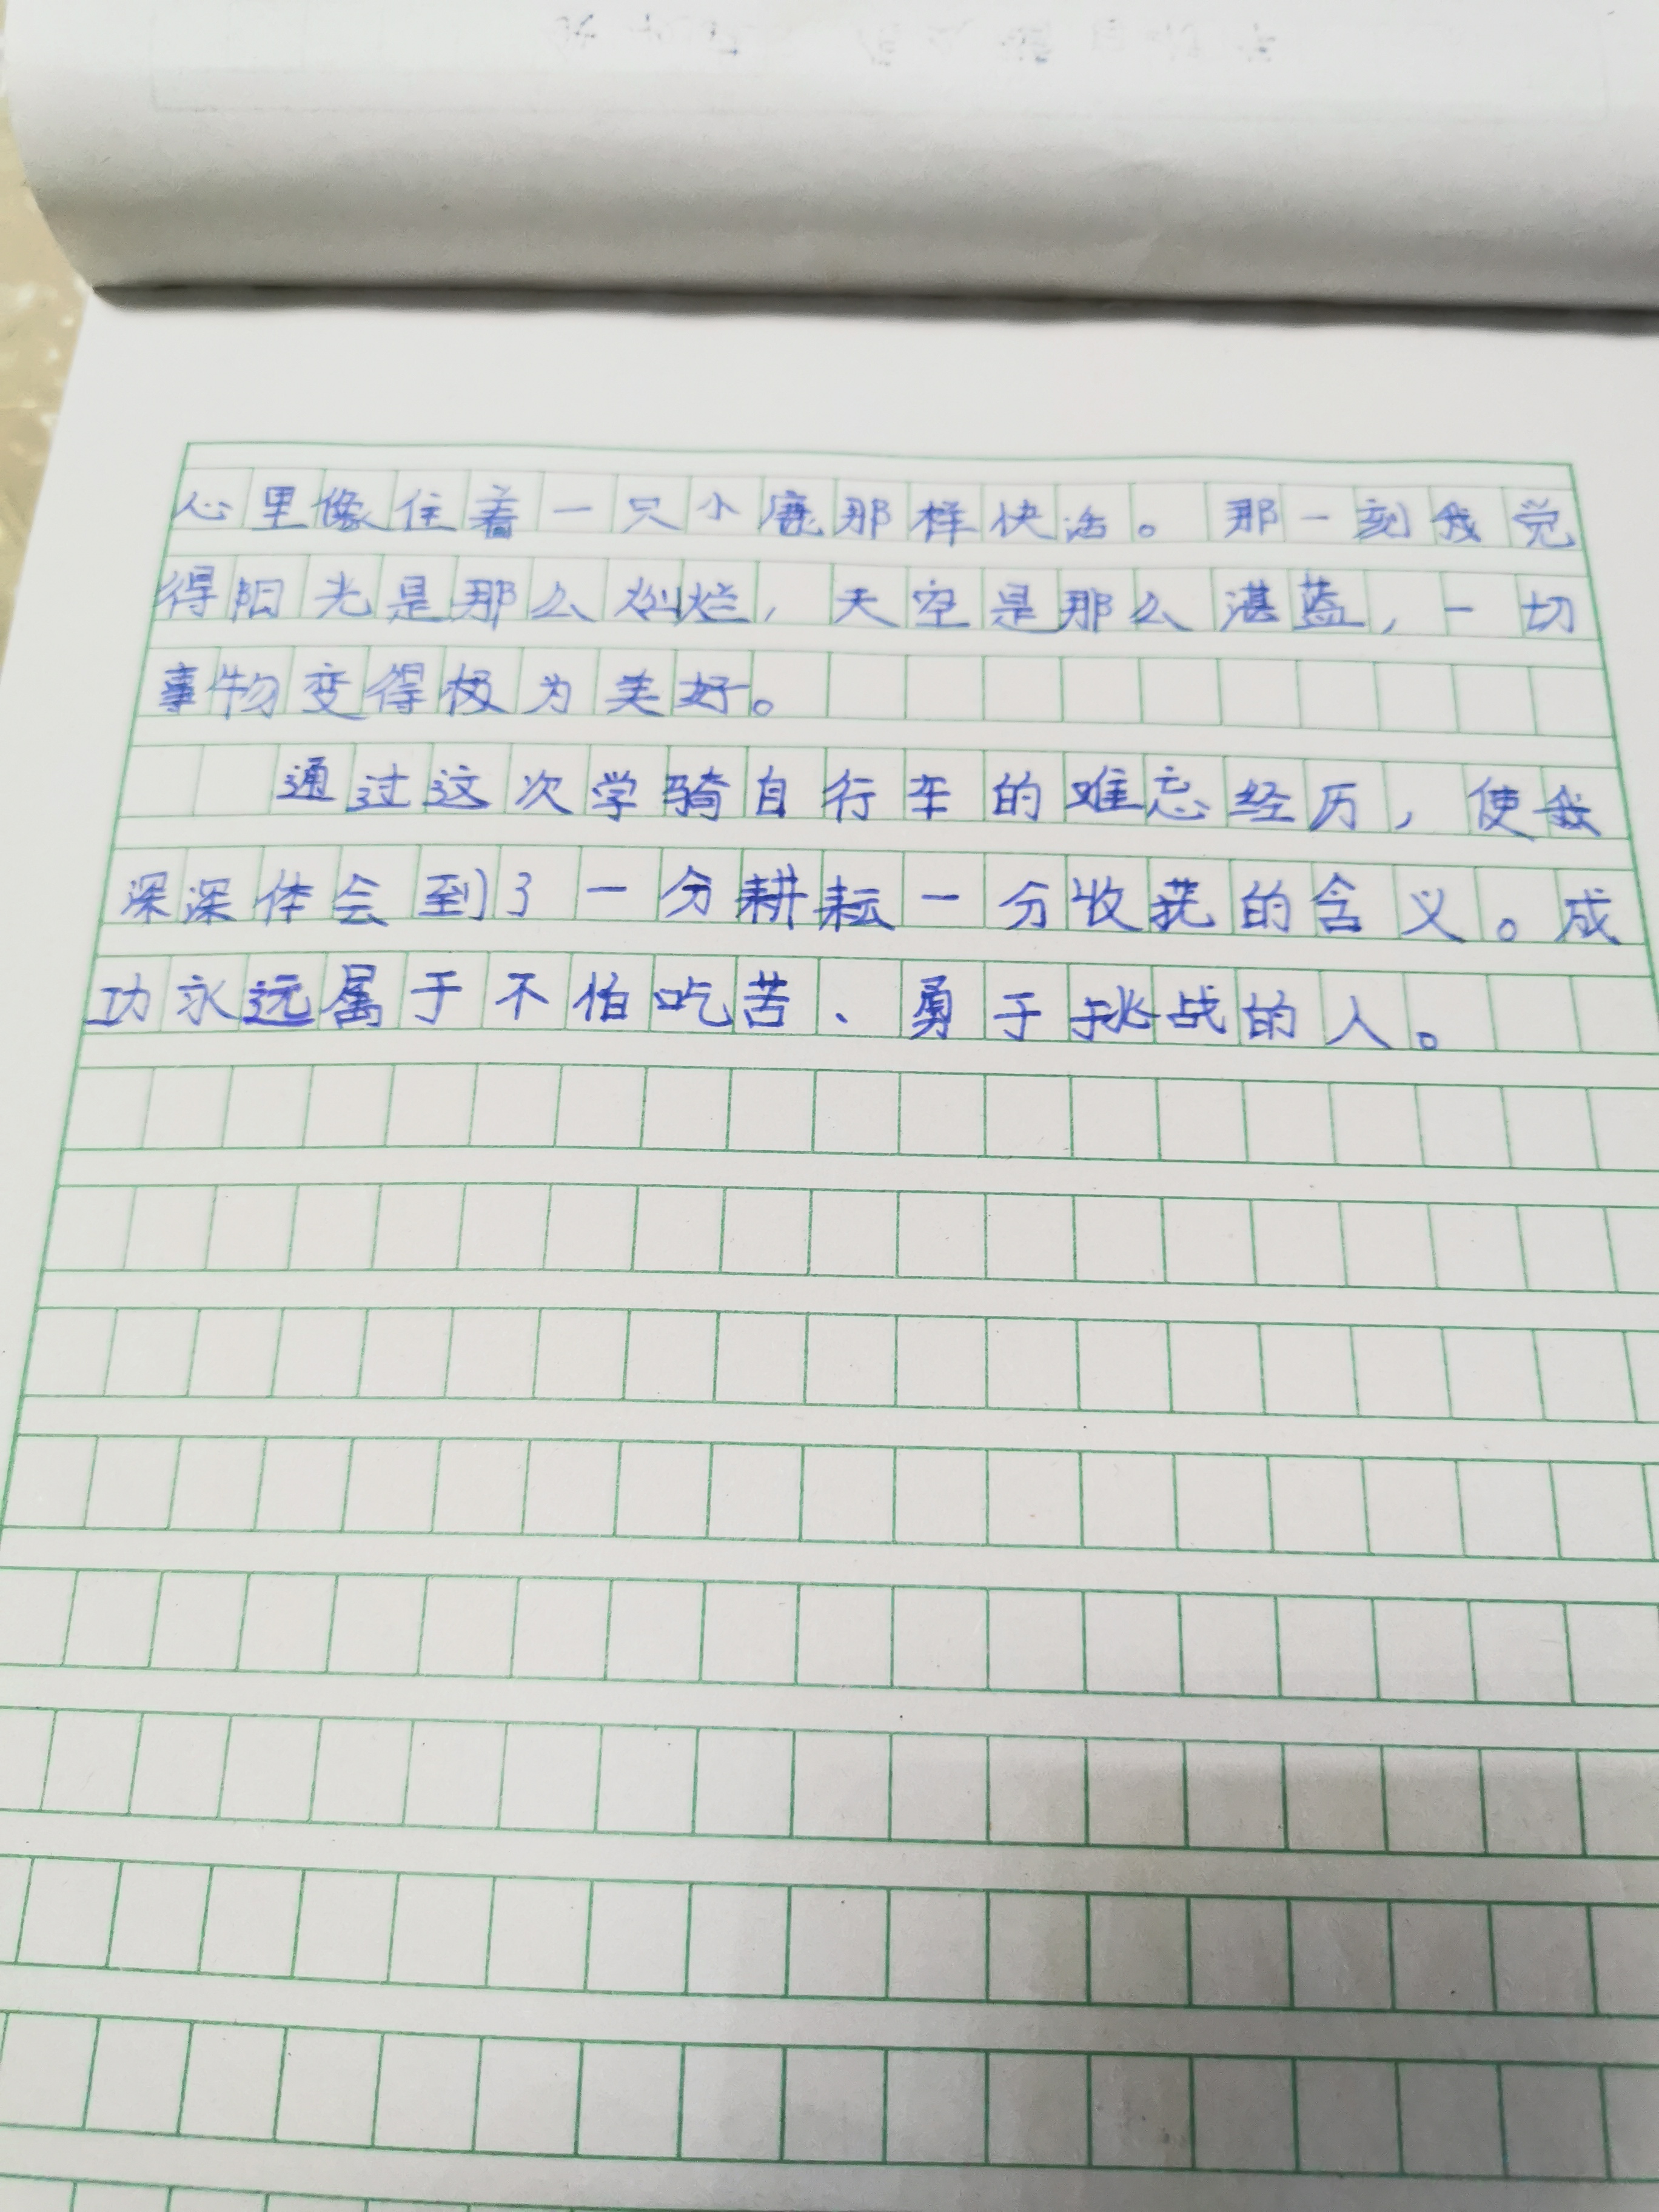 心里像住着一只小鹿那样快活。那一刻我觉
得阳光是那么灿烂，天空是那么湛蓝，一切
事物变得极为美好。
通过这次学骑自行车的难忘经历，使我
深深体会到了一分耕耘一分收获的含义。成
功永远属于不怕吃苦、勇于挑战的人。